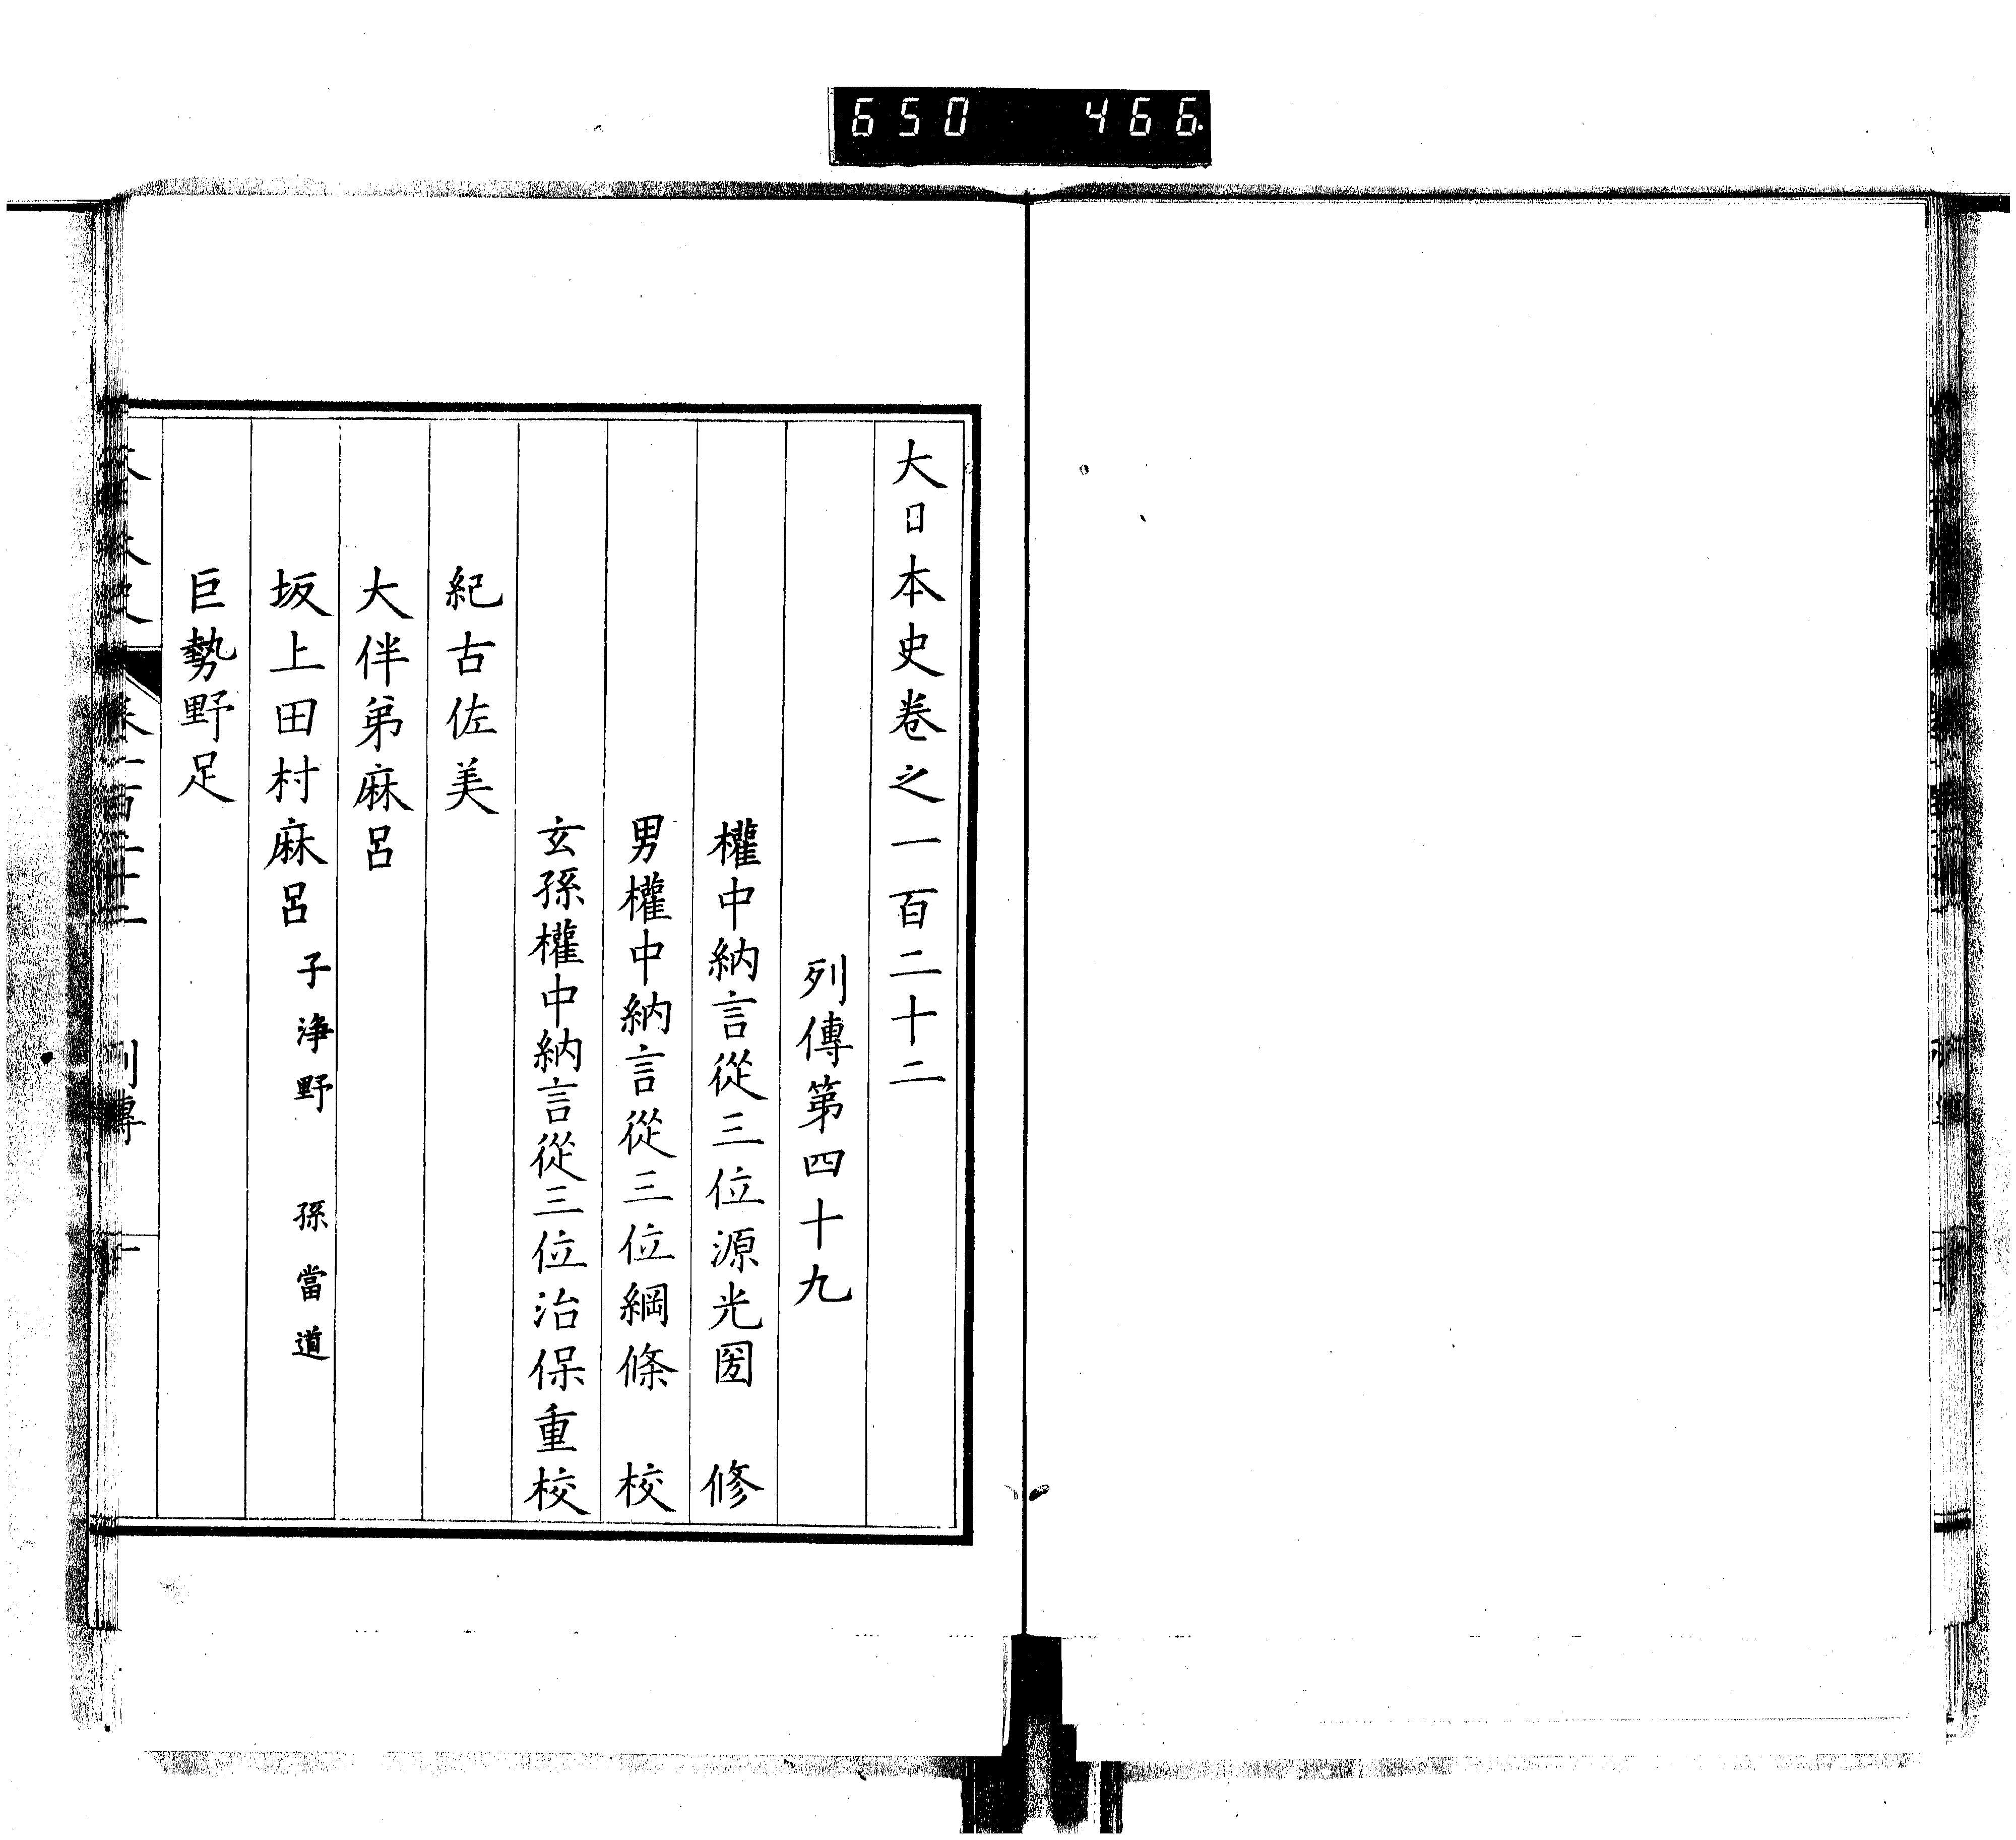 650 466
大日本史卷之一百二十二
列傳第四十九
權中納言從三位源光圀 修
男權中納言從三位綱條 校
玄孫權中納言從三位治保重校
紀古佐美
大伴弟麻呂
坂上田村麻呂 子淨野 孫當道
巨勢野足
列傳